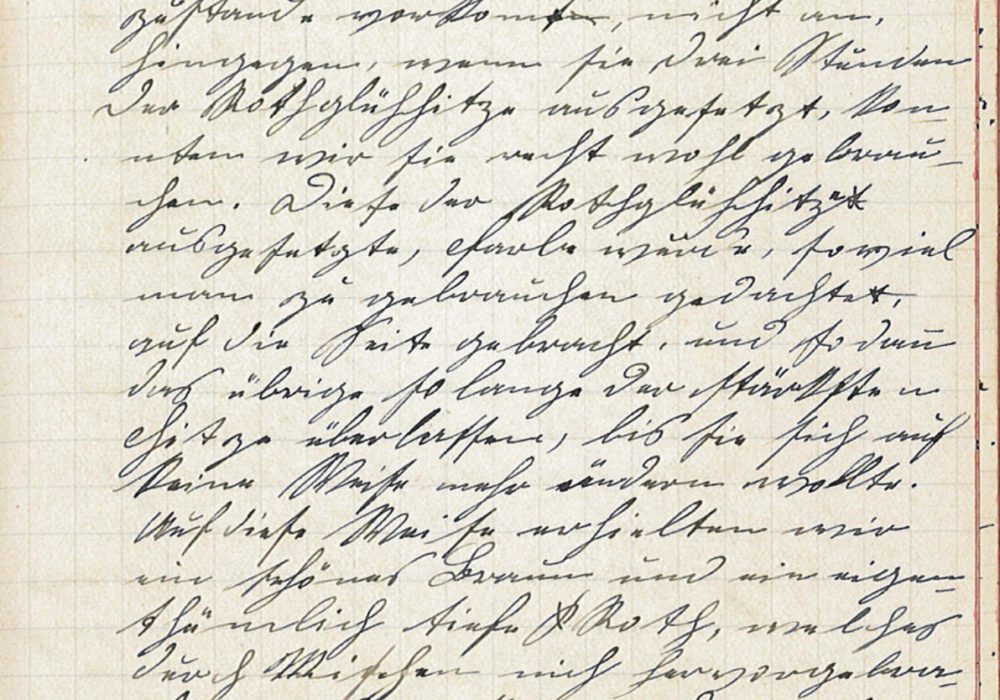 zustande vorkommen, nicht an,
hingegen, wenn sie drei Stunden
der Rothglühhitze ausgesetzt, kon-
nten wir sie recht wohl gebrau-
chen. Diese der Rothglühhitze
ausgesetzte, Farbe wurde, soviel
man zu gebrauchen gedachte,
auf die Seite gebracht, und so dan̄
das übrige so lange der stärksten
Hitze überlassen, bis sie sich auf
keine Weise mehr ändern wollte.
Auf diese Weise erhielten wir
ein schönes Braun und ein eigen-
thümlich tiefe Roth, welches
durch Mischen nich hervorgebra-